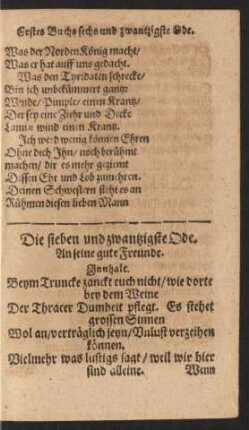 Erstes Buchs sechs und zwantzigste Ode.
Was der Norden König macht/
Was er hat auff uns gedacht.
Was den Tyridaten schrecke/
Bin ich unbekümmert gantz
Winde/ Pimple/ einen Krantz/
Der sey eine Ziehr und Decke
Lamiæ wind einen Krantz.
Ich werd wenig können Ehren
Ohne dich Jhn/ noch berühmt
machen/ dir es mehr geziemt
Dessen Ehr und Lob zumehren.
Deinen Schwestern steht es an
Rühmen diesen lieben Mann
Die sieben und zwantzigste Ode.
An seine gute Freunde.
Jnnhalt.
Beym Truncke zanckt euch nicht/ wie dorte
bey dem Weine
Der Thracer Dumheit pflegt. Es stehet
grossen Sinnen
Wol an/ verträglich seyn/ Unlust verzeihen
können.
Vielmehr was lustigs sagt/ weil wir hier
sind alleine.
Wenn